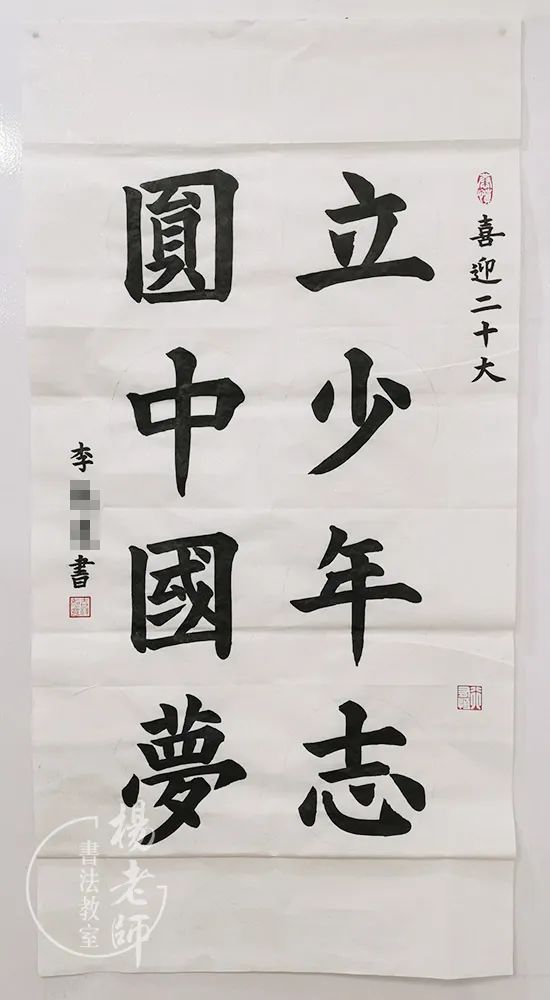 喜迎二十大
立少年志
圓中國夢
李
書
楊老師
書法教室